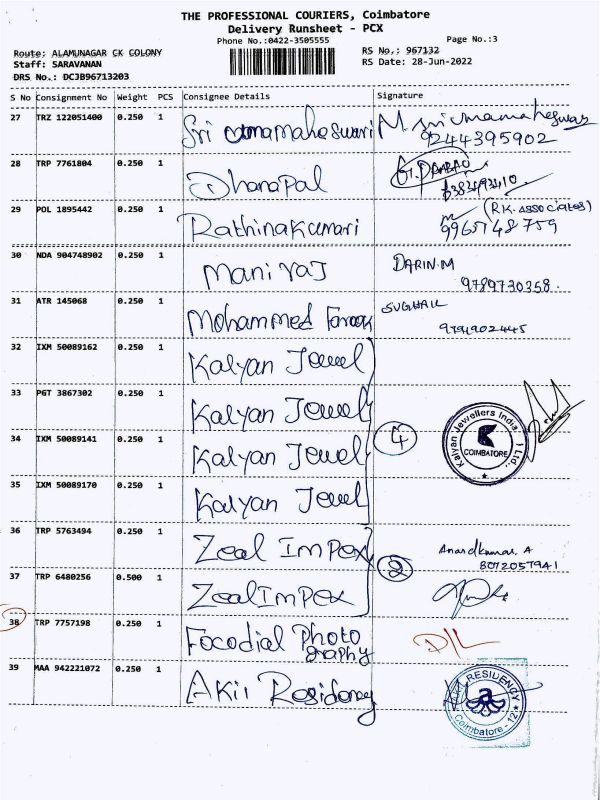 THE PROFESSIONAL COURIERS, Coimbatore
Delivery Runsheet - PCX
Phone No.:0422-3505555
Page No.:3
Route: ALAMUNAGAR CK COLONY
RS No.: 967132
Staff: SARAVANAN
RS Date: 28-Jun-2022
DRS No.: DCJB96713203
S No Consignment No Weight PCS Consignee Details Signature
27 TRZ 122051400 0.250 1 Sri umamaheswari M. Sri Umamaheswari
9244395902
28 TRP 7761804 0.250 1 Dhanapal
29 POL 1895442 0.250 1 Rathinakumari (R.K. Associates)
9965148759
30 NDA 904748902 0.250 1 Maniraj DARIN.M
9789730358
31 ATR 145068 0.250 1 Mohammed Farook SUGHAIL
32 IXM 50089162 0.250 1 Kalyan Jewel
33 PGT 3867302 0.250 1 Kalyan Jewel
34 IXM 50089141 0.250 1 Kalyan Jewel 4
Kalyan Jewellers India Ltd.,
COIMBATORE
35 IXM 50089170 0.250 1 Kalyan Jewel
36 TRP 5763494 0.250 1 Zeal Impex 2 Anandkumar. A
8072057941
37 TRP 6480256 0.500 1 Zeal Impex
38 TRP 7757198 0.250 1 Focodial Photography D/L
39 MAA 942221072 0.250 1 Akii Residency
RESIDENCY
Coimbatore - 12